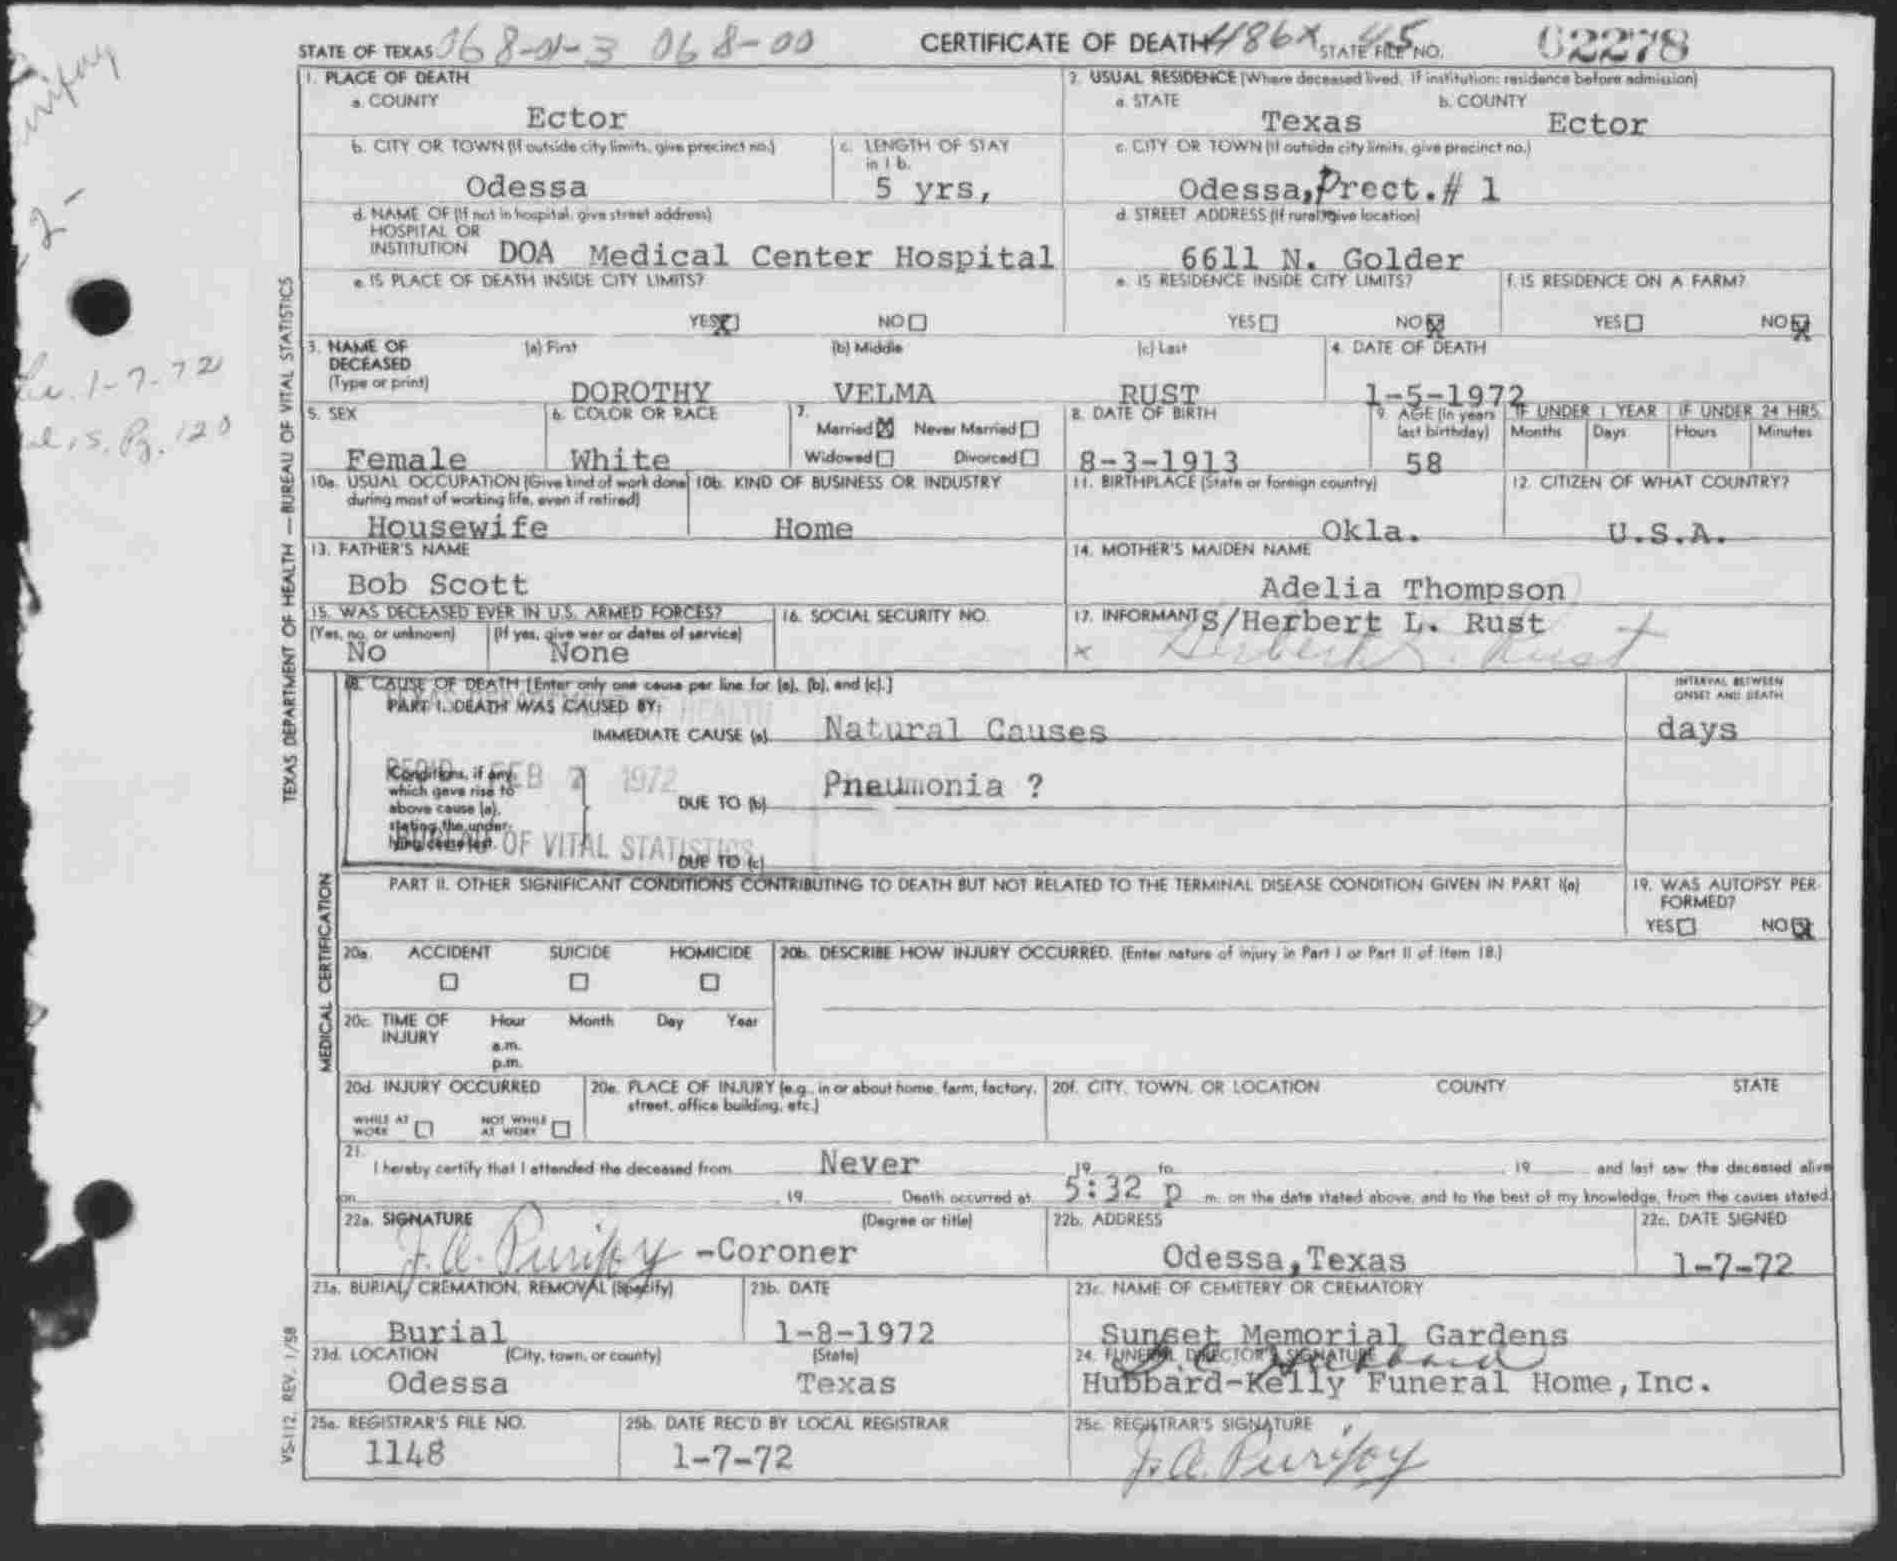 STATE OF TEXAS 068-01-3 068-00 CERTIFICATE OF DEATH 486X 45 STATE FILE NO. 02278
1. PLACE OF DEATH
a. COUNTY
Ector
2. USUAL RESIDENCE (Where deceased lived. If institution: residence before admission)
a. STATE b. COUNTY
Texas Ector
b. CITY OR TOWN (If outside city limits, give precinct no.) c. LENGTH OF STAY in 1 b.
Odessa 5 yrs,
c. CITY OR TOWN (If outside city limits, give precinct no.)
Odessa, Prect.# 1
d. NAME OF (If not in hospital, give street address)
HOSPITAL OR
INSTITUTION DOA Medical Center Hospital
d. STREET ADDRESS (If rural, give location)
6611 N. Golder
e. IS PLACE OF DEATH INSIDE CITY LIMITS?
YES X NO
e. IS RESIDENCE INSIDE CITY LIMITS? f. IS RESIDENCE ON A FARM?
YES NO X YES NO X
3. NAME OF DECEASED (Type or print) (a) First (b) Middle (c) Last 4. DATE OF DEATH
DOROTHY VELMA RUST 1-5-1972
5. SEX 6. COLOR OR RACE 7. Married X Never Married Widowed Divorced 8. DATE OF BIRTH 9. AGE (In years last birthday) IF UNDER 1 YEAR IF UNDER 24 HRS.
Months Days Hours Minutes
Female White 8-3-1913 58
10a. USUAL OCCUPATION (Give kind of work done during most of working life, even if retired) 10b. KIND OF BUSINESS OR INDUSTRY 11. BIRTHPLACE (State or foreign country) 12. CITIZEN OF WHAT COUNTRY?
Housewife Home Okla. U.S.A.
13. FATHER'S NAME 14. MOTHER'S MAIDEN NAME
Bob Scott Adelia Thompson
15. WAS DECEASED EVER IN U.S. ARMED FORCES? 16. SOCIAL SECURITY NO. 17. INFORMANT S/Herbert L. Rust
(Yes, no, or unknown) (If yes, give war or dates of service)
No None x Herbert L. Rust
18. CAUSE OF DEATH [Enter only one cause per line for (a), (b), and (c).] INTERVAL BETWEEN ONSET AND DEATH
PART I. DEATH WAS CAUSED BY:
IMMEDIATE CAUSE (a) Natural Causes days
Conditions, if any, which gave rise to above cause (a), stating the underlying cause last.
DUE TO (b) Pneumonia ?
DUE TO (c)
REC'D FEB 2 1972
BUREAU OF VITAL STATISTICS
PART II. OTHER SIGNIFICANT CONDITIONS CONTRIBUTING TO DEATH BUT NOT RELATED TO THE TERMINAL DISEASE CONDITION GIVEN IN PART I(a) 19. WAS AUTOPSY PERFORMED?
YES NO X
20a. ACCIDENT SUICIDE HOMICIDE 20b. DESCRIBE HOW INJURY OCCURRED. (Enter nature of injury in Part I or Part II of Item 18.)
20c. TIME OF INJURY Hour Month Day Year
a.m.
p.m.
20d. INJURY OCCURRED 20e. PLACE OF INJURY (e.g., in or about home, farm, factory, street, office building, etc.) 20f. CITY, TOWN, OR LOCATION COUNTY STATE
WHILE AT WORK NOT WHILE AT WORK
21. I hereby certify that I attended the deceased from Never 19 to 19 and last saw the deceased alive
on 19 Death occurred at 5:32 p m. on the date stated above, and to the best of my knowledge, from the causes stated.
22a. SIGNATURE (Degree or title) 22b. ADDRESS 22c. DATE SIGNED
J. A. Purifoy -Coroner Odessa, Texas 1-7-72
23a. BURIAL, CREMATION, REMOVAL (Specify) 23b. DATE 23c. NAME OF CEMETERY OR CREMATORY
Burial 1-8-1972 Sunset Memorial Gardens
23d. LOCATION (City, town, or county) (State) 24. FUNERAL DIRECTOR'S SIGNATURE
Odessa Texas Hubbard-Kelly Funeral Home, Inc.
25a. REGISTRAR'S FILE NO. 25b. DATE REC'D BY LOCAL REGISTRAR 25c. REGISTRAR'S SIGNATURE
1148 1-7-72 J. A. Purifoy
TEXAS DEPARTMENT OF HEALTH — BUREAU OF VITAL STATISTICS
MEDICAL CERTIFICATION
VS-112, REV. 1/58
1-7-72
Pg. 120